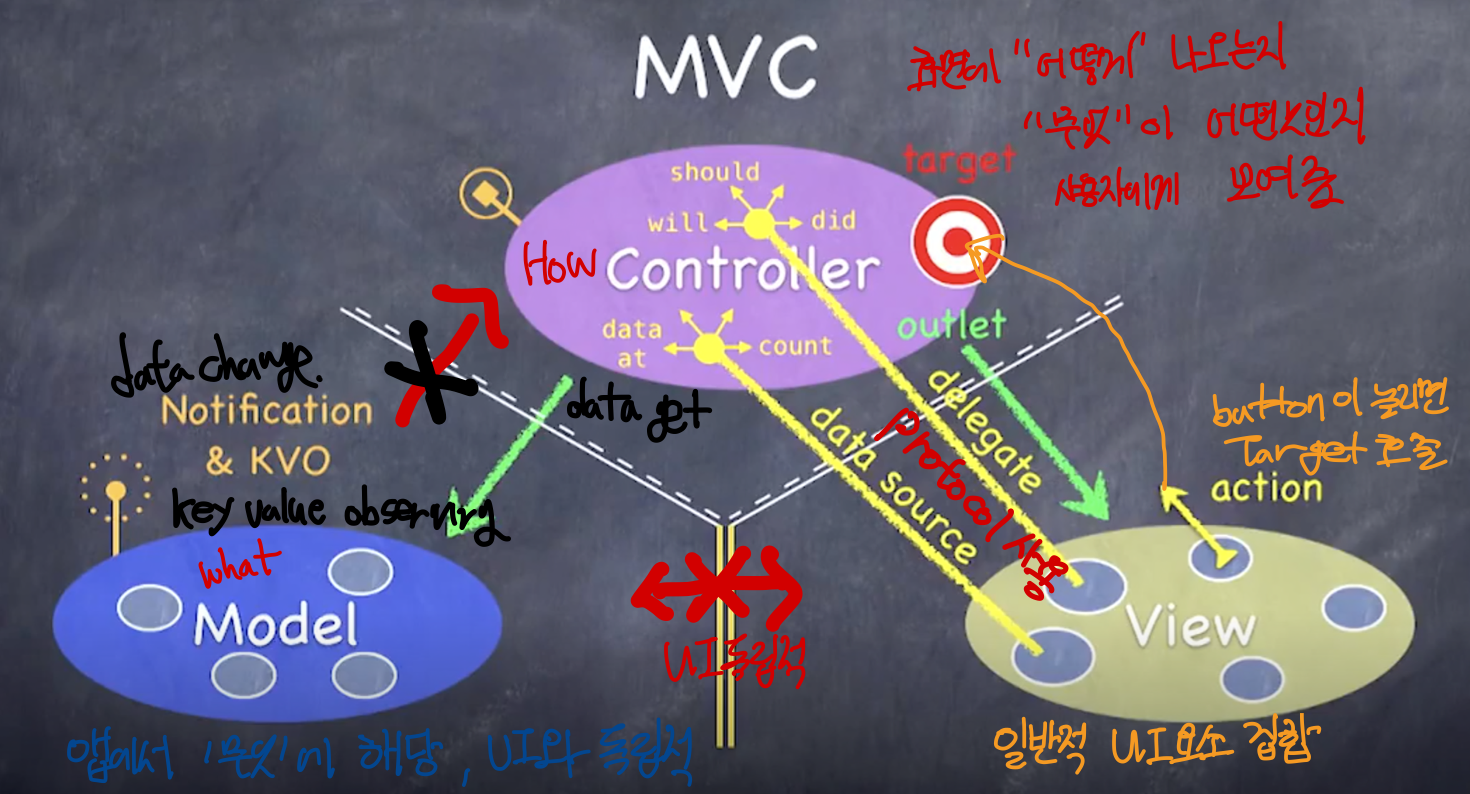 MVC
화면에 "어떻게" 나오는지
"무엇"이 어떤식인지
사용자에게 보여줌
target
should
will
did
How
Controller
data
at
count
outlet
data change.
Notification
& KVO
data get
delegate
data source
protocol 사용
button이 눌리면
Target 호출
action
key value observing
what
Model
View
UI독립적
앱에서 '무엇'에 해당, UI와 독립적
일반적 UI요소 집합